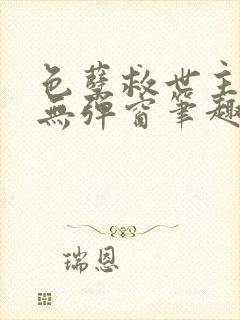 色孽救世主
無彈窗筆趣
瑞恩